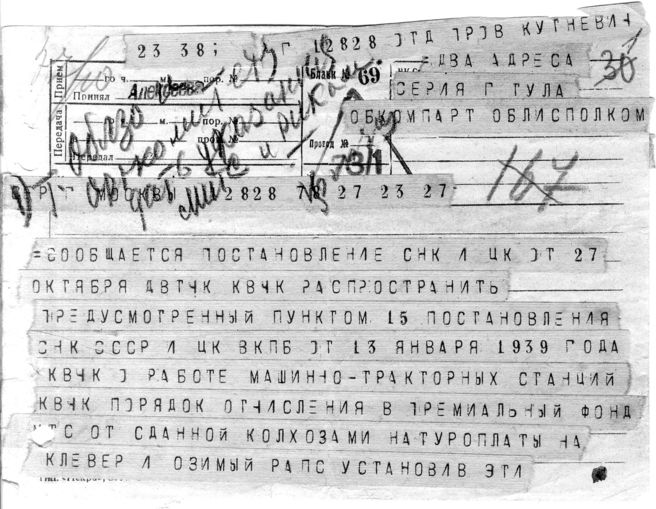 23 38; Г 12828 ОТД ПРОВ КУТНЕВИЧ
=ДВА АДРЕСА
30
Прием
го ч. м. пор. №
Бланк № 69
Принял Алексеева
СЕРИЯ Г ТУЛА
Передача
ОБКОМПАРТ ОБЛИСПОЛКОМ
Передал
Провод №
167
2828 78 27 23 27
=СООБЩАЕТСЯ ПОСТАНОВЛЕНИЕ СНК И ЦК ОТ 27
ОКТЯБРЯ ДВТЧК КВЧК РАСПРОСТРАНИТЬ
ПРЕДУСМОТРЕННЫЙ ПУНКТОМ 15 ПОСТАНОВЛЕНИЯ
СНК СССР И ЦК ВКПБ ОТ 13 ЯНВАРЯ 1939 ГОДА
КВЧК О РАБОТЕ МАШИННО-ТРАКТОРНЫХ СТАНЦИЙ
КВЧК ПОРЯДОК ОТЧИСЛЕНИЯ В ПРЕМИАЛЬНЫЙ ФОНД
МТС ОТ СДАННОЙ КОЛХОЗАМИ НАТУРОПЛАТЫ НА
КЛЕВЕР И ОЗИМЫЙ РАПС УСТАНОВИВ ЭТИ